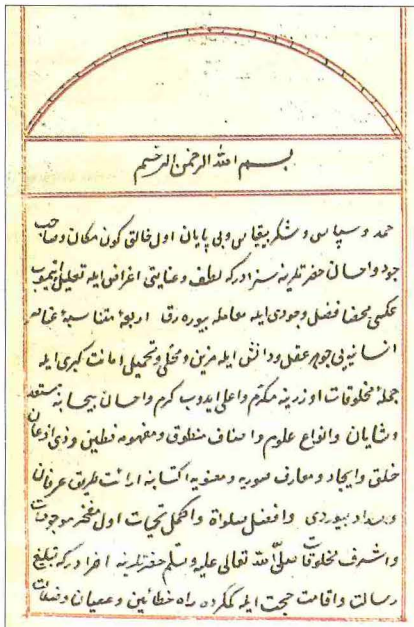 بسم الله الرحمن الرحيم
حمد و سپاس و شكر بيقياس وبى پايان اول خالق كون مكان وصاحب
جود واحسان حضرتلرينه سزادركه لطف وعنايتى اغراض ايله تعليل
محضا فضل وجودى ايله معامله بيورەرق اربعۀ متناسبۀ عناصر
انسانيه يى جوهر عقل ودانش ايله مزين ومحلى وتحميلى امانت كبرى ايله
جملۀ مخلوقات اوزرينه مكرّم واعلى ايدوب كرم واحسان بيحابانه مستعد
وشايان وانواع علوم واصناف منطوق ومفهومه فطين وذى اذعان
خلق وايجاد ومعارف صوريه ومعنويه اكتسابنه ارائت طريق عرفان
وسداد بيوردى وافضل صلواة واكمل تحيات اول مفخر موجودات
واشرف مخلوقات صلى الله تعالى عليه وسلم حضرتلرينه احرادركه تبليغ
رسالت واقامت حجت ايله گمكرده راه خطائين وعصيان